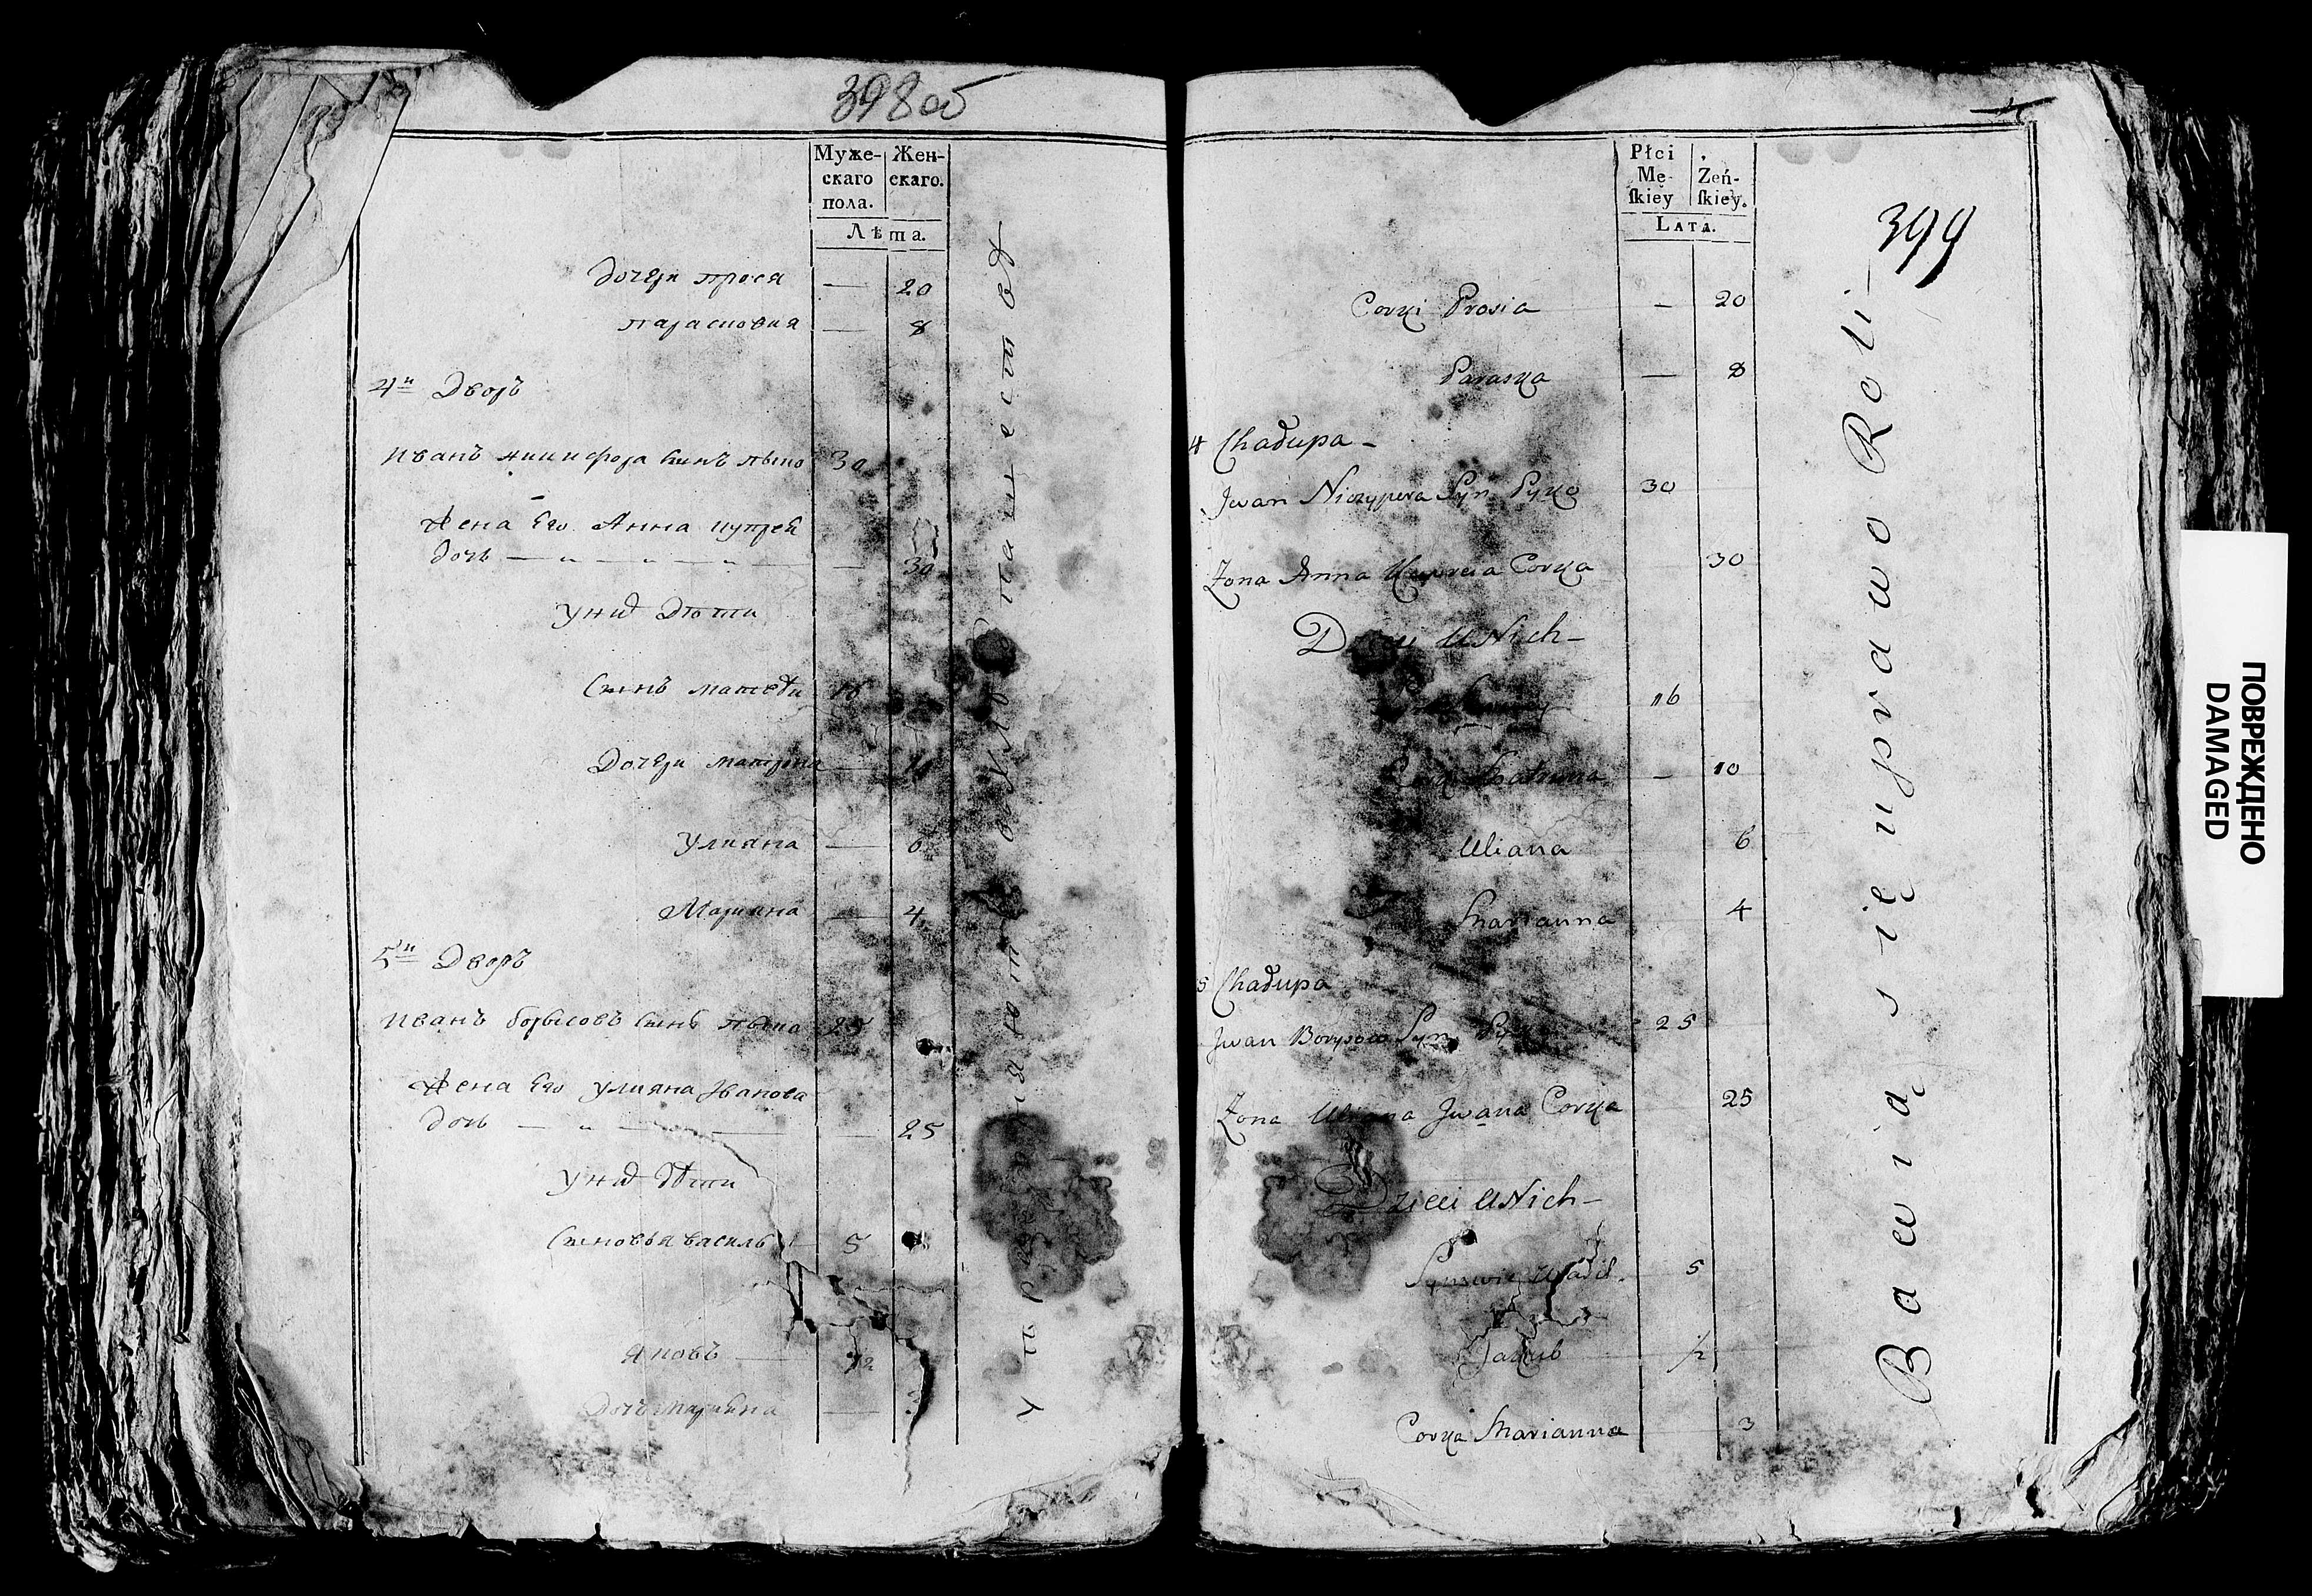 398 об
Муже-
скаго
пола.
Жен-
скаго.
Лѣта.
Дочери прося — 20
парасковия — 8
4й Дворъ
Иванъ никифора сынъ пыко 30
Жена Его Анна купрея
дочь — 30
У нихъ Дѣти
Сынъ матвей 16
Дочери матрена — 10
Улияна — 6
Марияна — 4
5й Дворъ
Иванъ борысовъ сынъ пыка 25
Жена Его улияна Иванова
дочь — 25
У нихъ Дѣти
Сыновья василь 5
Яковъ — 1/2
Дочь марияна — 3
399
Płci
Mę-
ſkiey
Żeń-
ſkiey.
Lata.
Corki Prosia — 20
Paraska — 8
4 Chałupa –
Jwan Niczypera Syn Pyko 30
Żona Anna Kupreia Corka 30
Dzieci u Nich –
16
Corki Matruna — 10
Uliana 6
Marianna 4
5 Chałupa
Jwan Borysow Syn 25
Żona Uliana Jwana Corka 25
Dzieci u Nich –
Synowie Wasil. 5
Jakub 1/2
Corka Marianna 3
Bawią się uprawo Roli
ПОВРЕЖДЕНО
DAMAGED